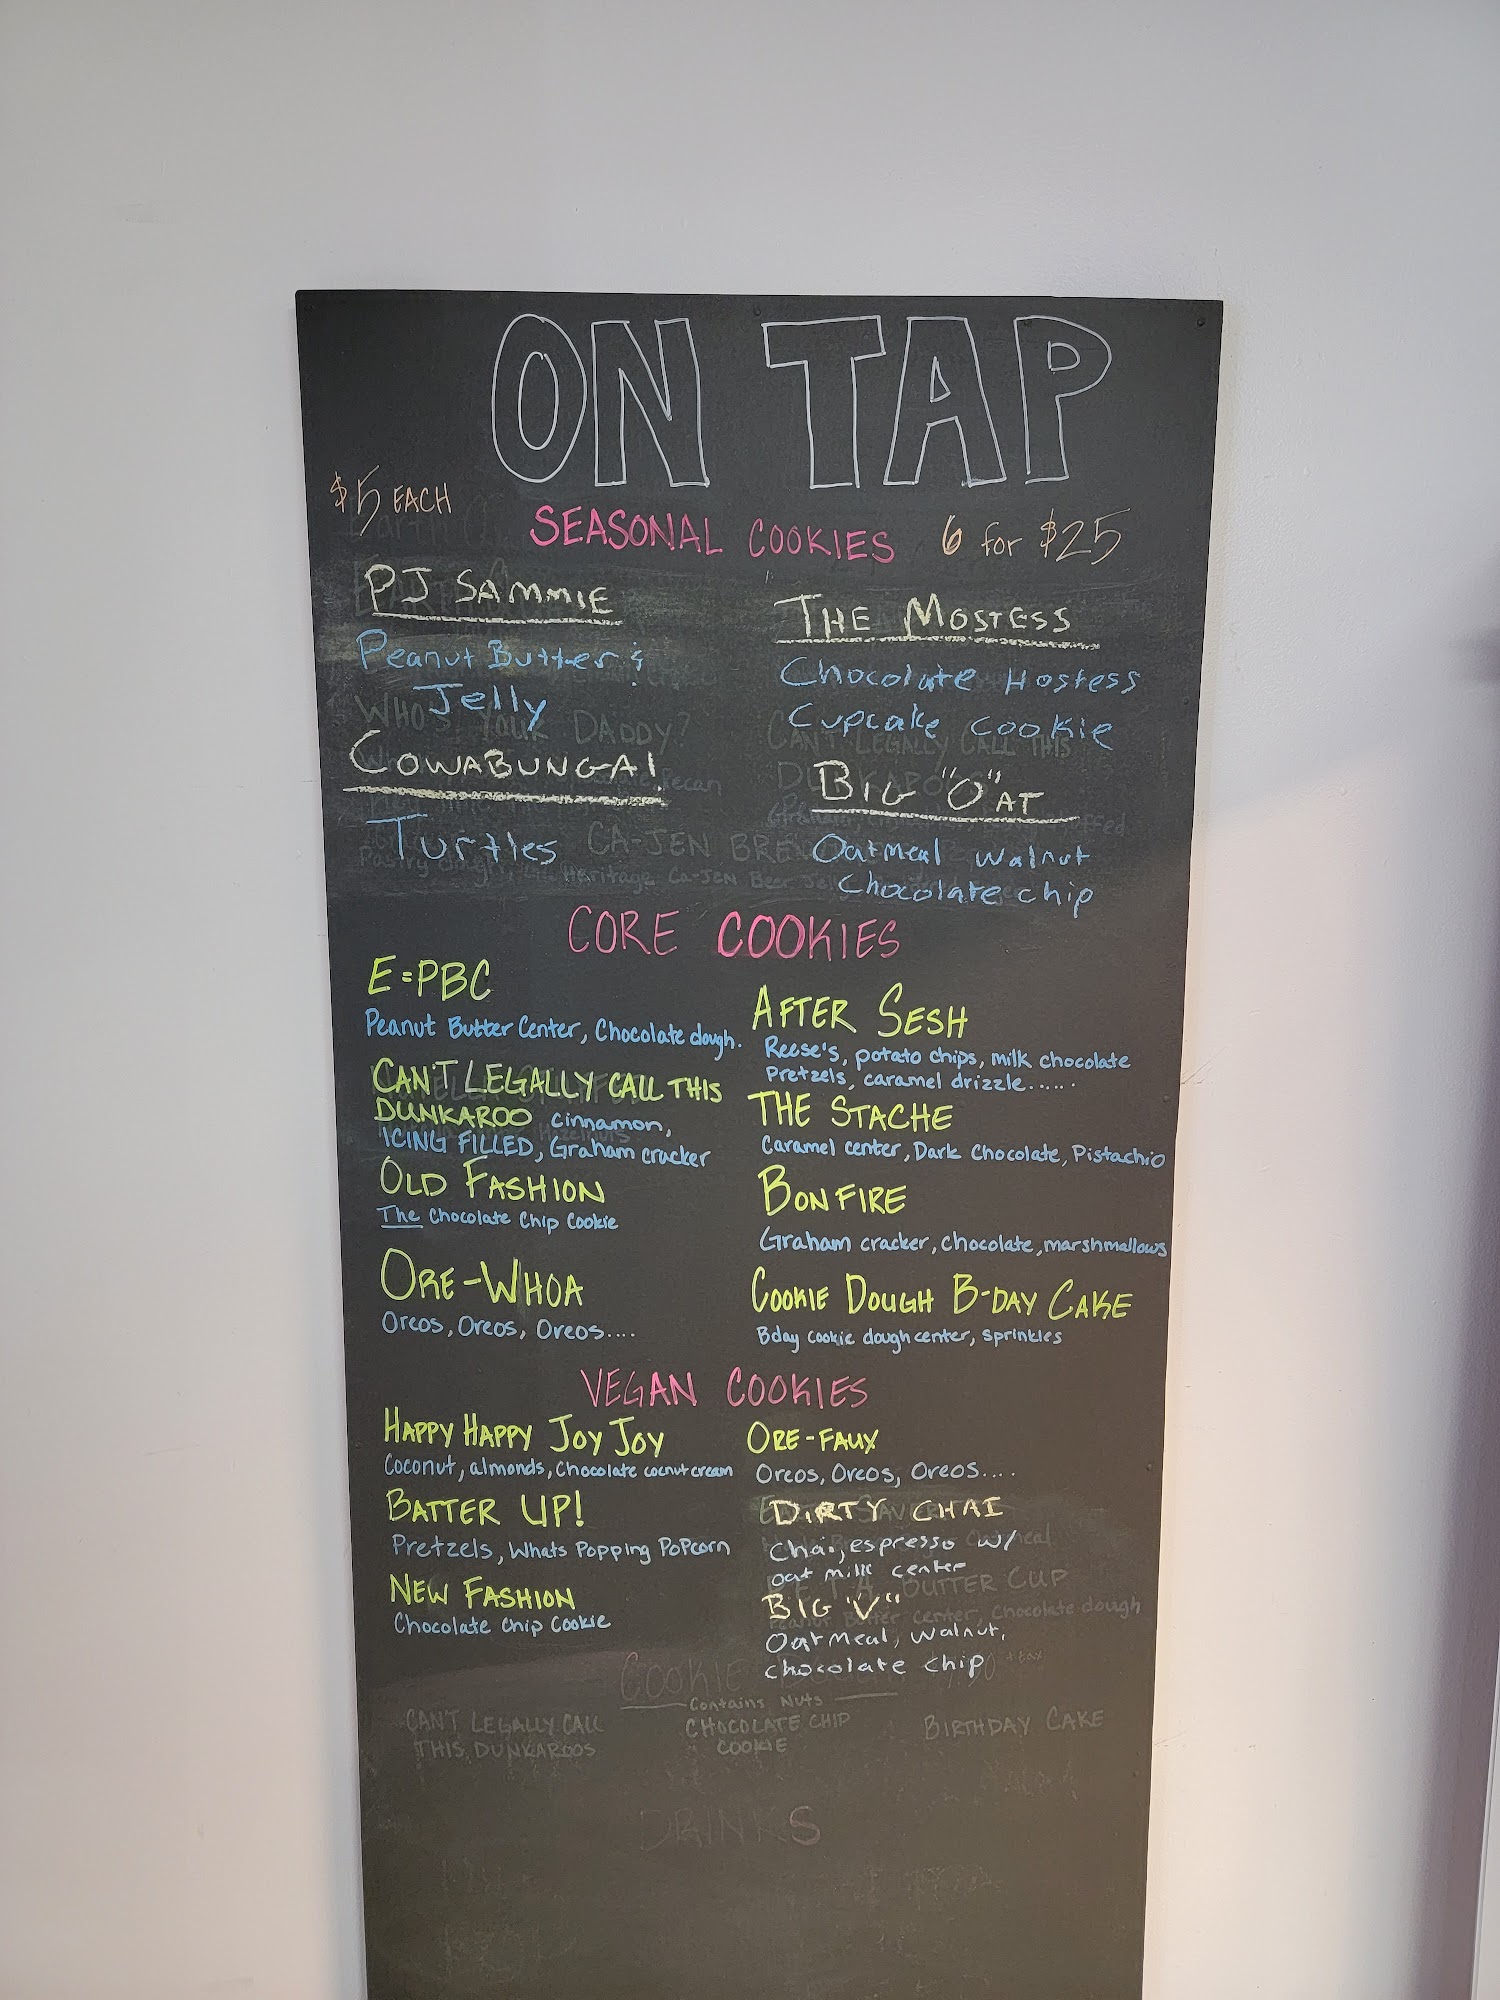 ON TAP
$5 EACH
SEASONAL COOKIES 6 for $25
PJ SAMMIE
Peanut Butter &
Jelly
COWABUNGA!
Turtles
THE MOSTESS
Chocolate Hostess
Cupcake Cookie
BIG "O"AT
Oatmeal walnut
Chocolate chip
WHO'S YOUR DADDY?
CAN'T LEGALLY CALL THIS
CA-JEN
CORE COOKIES
E=PBC
Peanut Butter Center, Chocolate dough.
CAN'T LEGALLY CALL THIS
DUNKAROO cinnamon,
ICING FILLED, Graham cracker
OLD FASHION
The Chocolate Chip Cookie
ORE-WHOA
Oreos, Oreos, Oreos....
AFTER SESH
Reese's, potato chips, milk chocolate
Pretzels, caramel drizzle......
THE STACHE
Caramel center, Dark Chocolate, Pistachio
BONFIRE
Graham cracker, chocolate, marshmallows
COOKIE DOUGH B-DAY CAKE
Bday cookie dough center, sprinkles
VEGAN COOKIES
HAPPY HAPPY JOY JOY
Coconut, almonds, Chocolate cocnut cream
BATTER UP!
Pretzels, Whats Popping Popcorn
NEW FASHION
Chocolate Chip Cookie
ORE-FAUX
Oreos, Oreos, Oreos....
DIRTY CHAI
Chai, espresso w/
oat milk center
BUTTER CUP
BIG "V"
Center, Chocolate dough
Oatmeal, walnut,
chocolate chip
COOKIE
Contains Nuts
CAN'T LEGALLY CALL
THIS DUNKAROOS
CHOCOLATE CHIP
COOKIE
BIRTHDAY CAKE
DRINKS